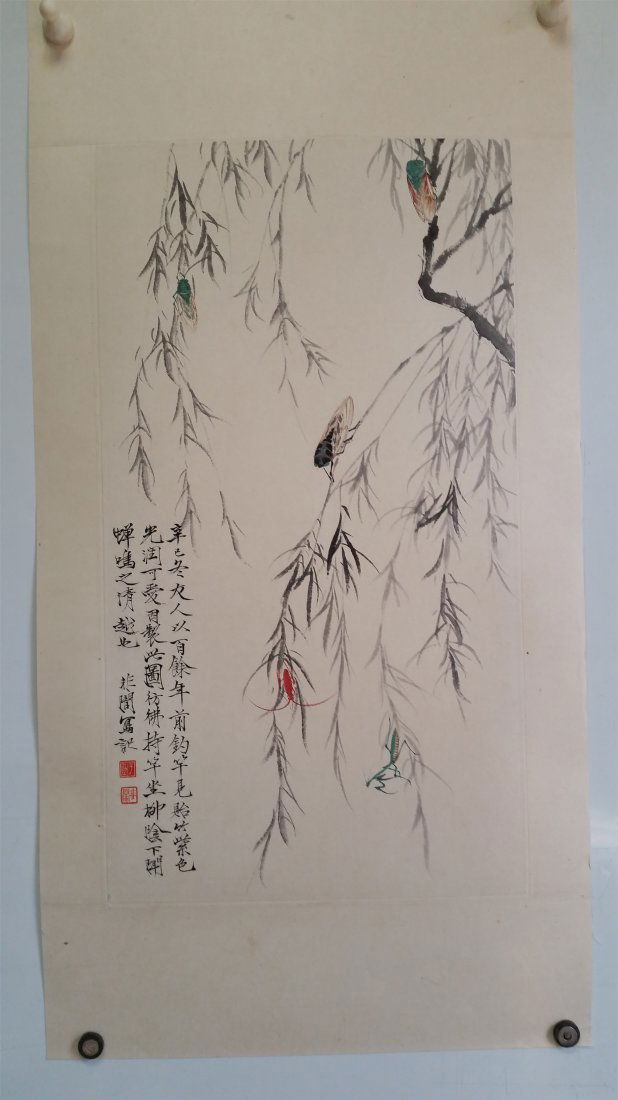 辛巳冬友人以百餘年前釣竿見貽竹紫色
光潤可愛因製此圖彷彿持竿坐柳陰下聞
蟬鳴之清越也
非闇寫記